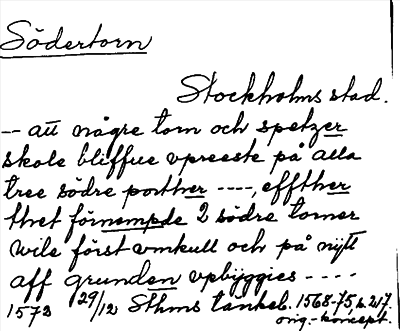 Södertorn
Stockholms stad.
-- att någre torn och spetzer
skole bliffue vpreeste på alla
tree södre porther ----, effther
thet förnempde 2 södre torner
wile först vmkull och på nytt
aff grunden vpbyggies ----
1573 29/12 Sthms tänkeb. 1568-75 s. 217.
orig.-koncept.